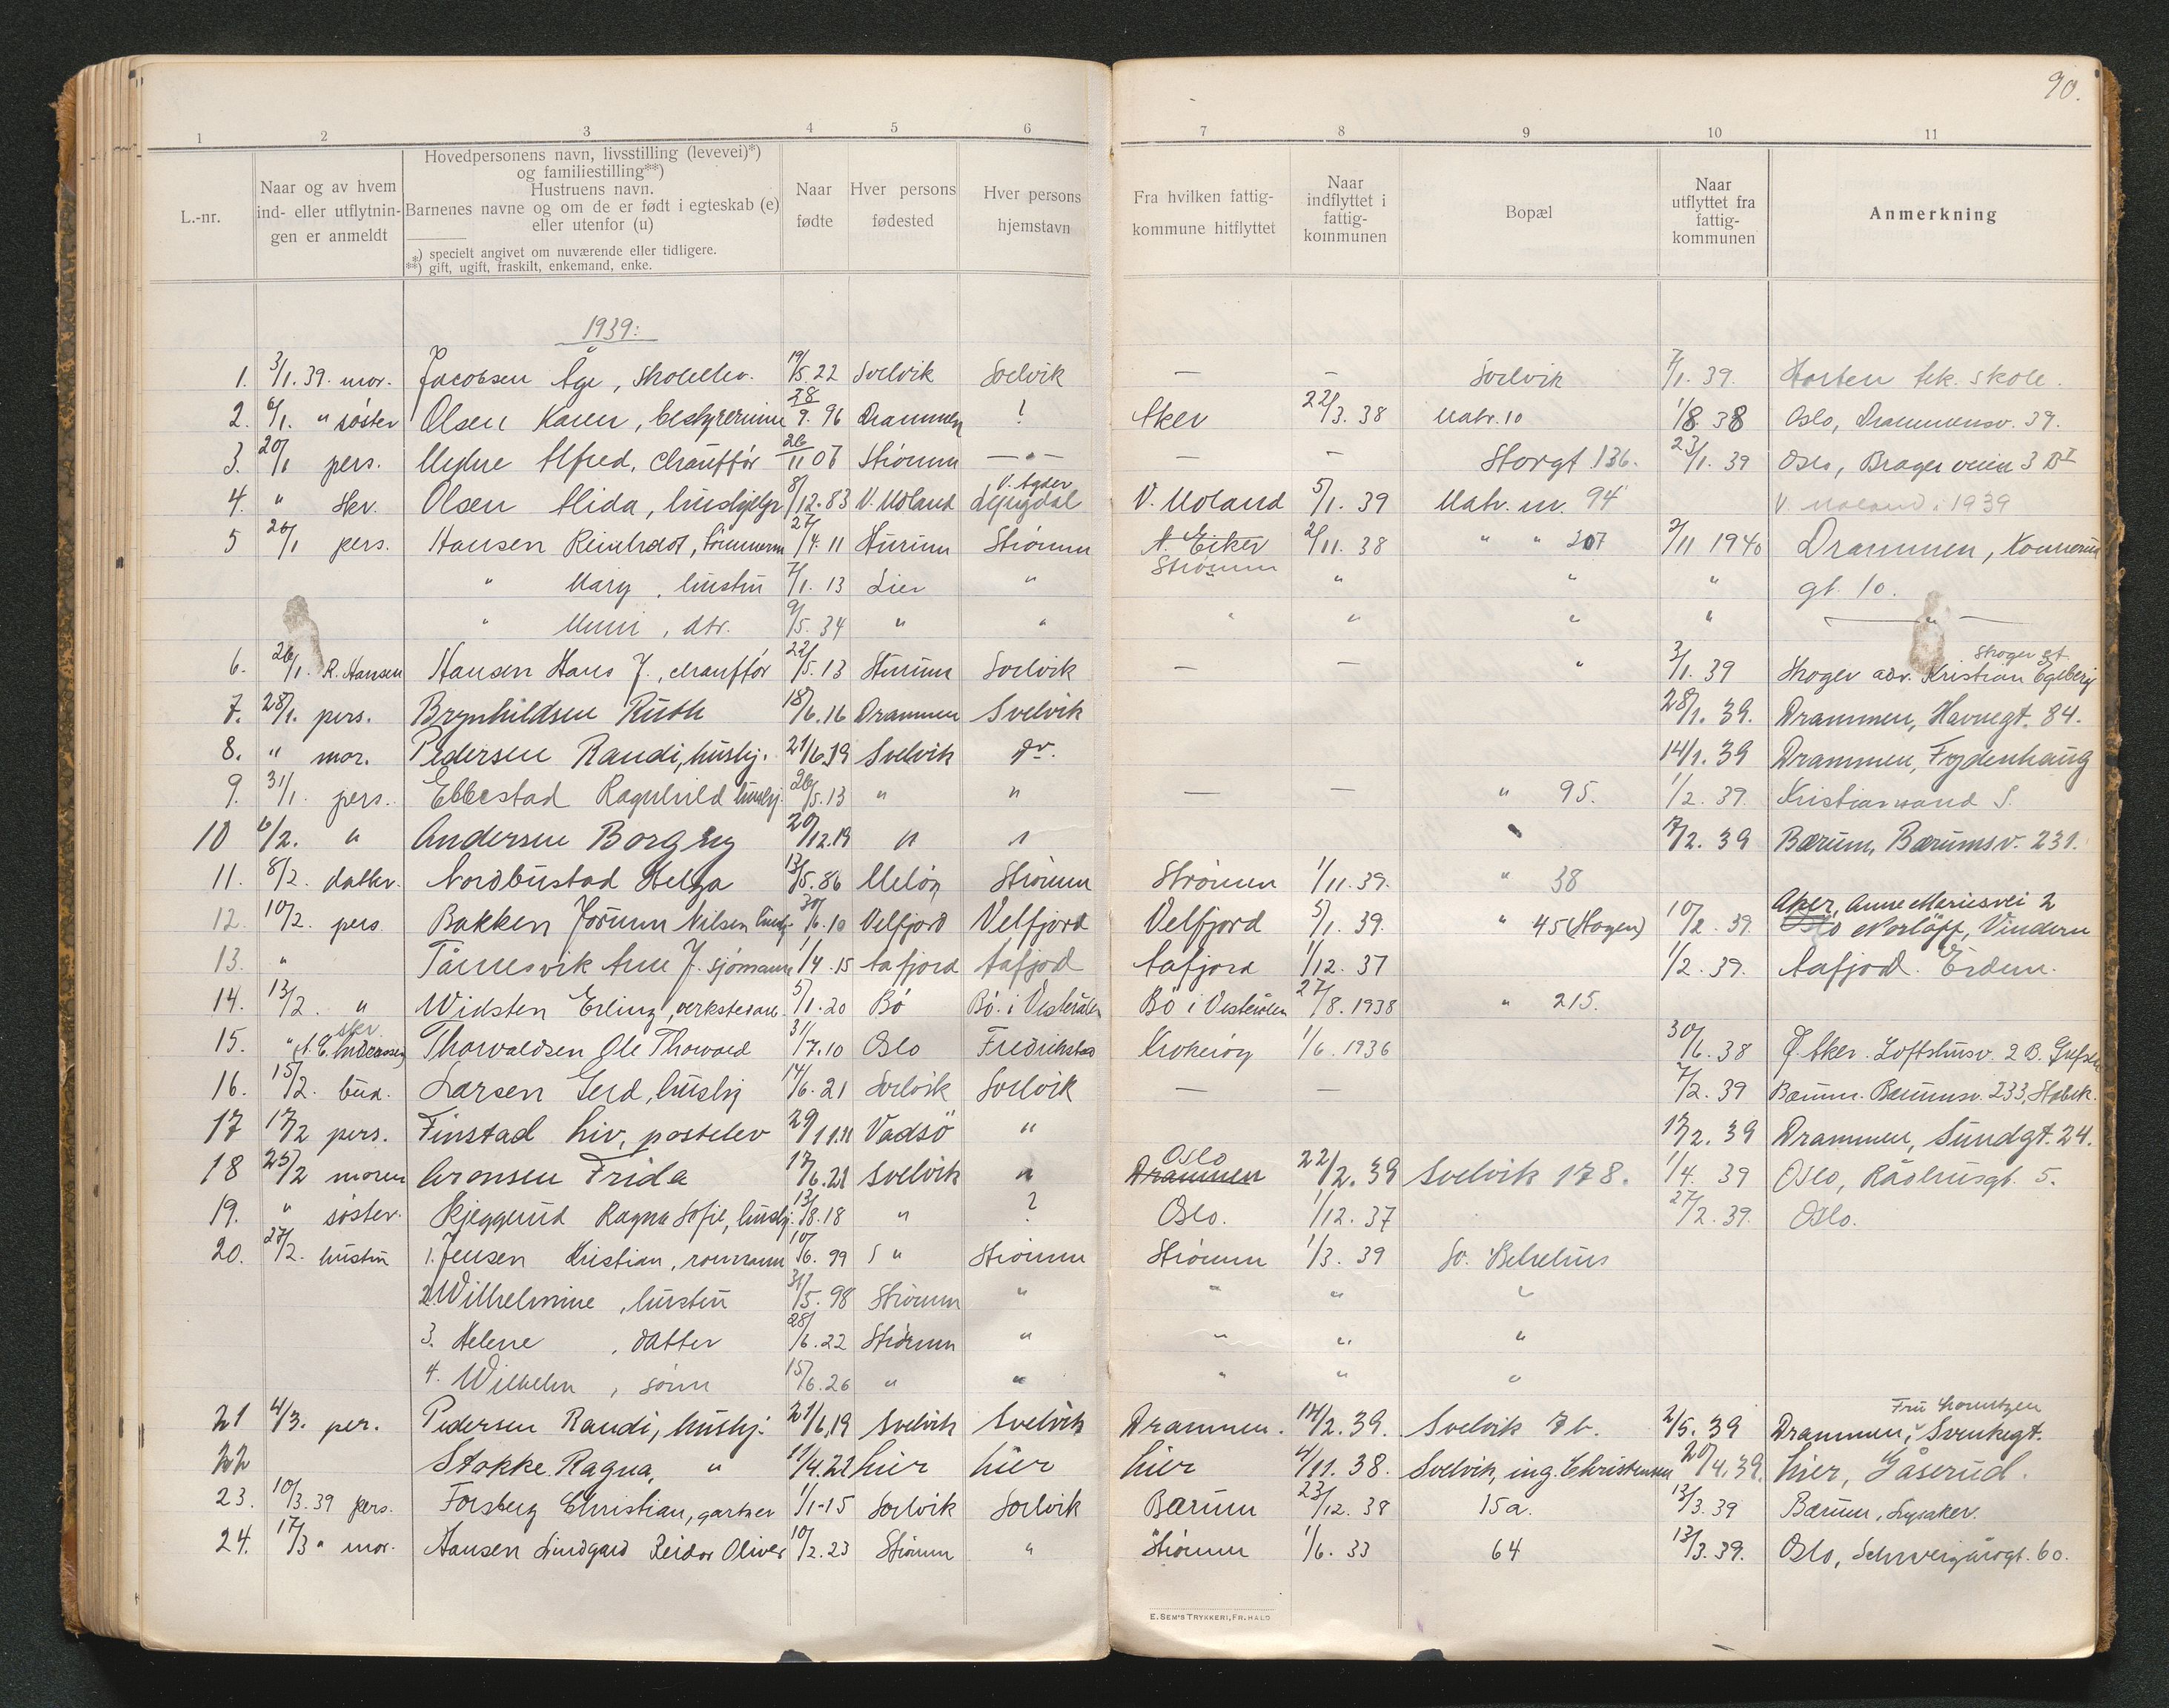 90.
1 2 3 4 5 6 7 8 9 10 11
L.-nr.
Naar og av hvem
ind- eller utflytnin-
gen er anmeldt
Hovedpersonens navn, livsstilling (levevei)*)
og familiestilling**)
Hustruens navn.
Barnenes navne og om de er født i egteskab (e)
eller utenfor (u)
*) specielt angivet om nuværende eller tidligere.
**) gift, ugift, fraskilt, enkemand, enke.
Naar
fødte
Hver persons
fødested
Hver persons
hjemstavn
Fra hvilken fattig-
kommune hitflyttet
Naar
indflyttet i
fattig-
kommunen
Bopæl
Naar
utflyttet fra
fattig-
kommunen
Anmerkning
1939:
1. 3/1. 39. mor. Jacobsen Åge, skoleelev. 19/5. 22 Svelvik Svelvik — — Svelvik 7/1. 39. Horten tek. skole.
2. 6/1. " søster Olsen Karen, bestyrerinne 28/9. 96 Drammen ? Aker 22/3. 38 Matr. 10 1/8. 38 Oslo, Drammensv. 39.
3. 20/1 pers. Alfred, chauffør 26/11 07 Strømm — " — — — Storgt 136. 23/1. 39 Oslo, Brager veien 3 B I
4. " skr. Olsen Alida, hushjelp 8/12. 83 V. Moland V. Agder V. Moland 5/1. 39 Matr. nr. 94 V. Moland. 1939
5 26/1 pers. Hansen Reinhardt, 27/4. 11 Hurum Strømm N. Eiker 2/11. 38 " " 207 2/11 1940 Drammen, Konnerud
" Mary, hustru 7/1. 13 Lier " Strømm " " " gt. 10.
" , dtr. 9/5. 34 " " " " " " — " —
6. 26/1. R. Hansen Hansen Hans J., chauffør 22/5. 13 Hurum Svelvik — — " 3/1. 39 Skoger adr. Kristian Egeberg
Skoger st.
7. 28/1. pers. Brynhildsen Ruth 18/6. 16 Drammen Svelvik 28/1. 39. Drammen, Havnegt. 84.
8. " mor. Pedersen Randi, hushj. 21/6. 19 Svelvik do. 14/1. 39 Drammen, Fydenhaug
9. 31/1. pers. Ebbestad Ragnhild hushj. 26/5. 13 " " — — " 95. 1/2. 39. Kristiansand S.
10 6/2. " Andersen Borgny 20/12. 19 " " 7/2. 39 Bærum, Bærumsv. 231.
11. 8/2. datter. Nordbustad Helga 13/5. 86 Meløy Strømm Strømm 1/11. 39. " 38
12. 10/2. pers Bakken Jorunn Nilsen hushj. 30/6. 10 Velfjord Velfjord Velfjord 5/1. 39. " 45 (Hagen) 10/2. 39. Aker, Anne Mariesvei 2
Oslo Norløff, Vindern
13. " Tårnesvik Arne J. sjømann 1/4. 15 Aafjord Aafjord Aafjord 1/12. 37 1/2. 39. Aafjord.
14. 13/2. " Widsten Erling, verkstedarb. 5/1. 20 Bø Bø. i Vesterålen Bø i Vesterålen 27/8. 1938 " 215.
15. " skr. A. E. Andersen Thorvaldsen Ole Thorvald 31/7. 10 Oslo Fredrikstad Krokerøy 1/6. 1936 30/6. 38 Ø. Aker. Loftshusv. 2 B. Grefsen
16. 15/2. bud. Larsen Gerd, hushj 14/6. 21 Svelvik Svelvik — — 7/2. 39 Bærum. Bærumsv. 233, Stabek.
17 17/2 pers. Finstad Liv, postelev 29/11. 11 Vadsö " 17/2. 39 Drammen, Sundgt. 24.
18 25/2 moren Aronsen Frida 17/6. 21 Svelvik " Oslo Drammen 22/2. 39 Svelvik 178. 1/4. 39 Oslo, Rådhusgt. 5.
19. " søster. Skjeggerud Ragna Sofie, hushj. 13/8. 18 " ? Oslo. 1/12. 37 27/2. 39. Oslo.
20. 27/2. hustru 1. Jensen Kristian, rormann 10/6. 99 S " Strømm Strømm 1/3. 39 Sv. Bedehus
2. Wilhelmine, hustru 31/5. 98 Strømm " " " "
3. Helene, datter 28/6. 22 Strømm " " " "
4. Wilhelm, sønn 15/6. 26 " " " " "
21 4/3. per. Pedersen Randi, hushj. 21/6. 19 Svelvik Svelvik Drammen. 14/2. 39. Svelvik 7 b. 2/5. 39 Drammen, Svenkegt.
Fru Lorentzen
22 Stokke Ragna, " 11/4. 22 hier hier Lier 4/11. 38. Svelvik, ing. Christensen 20/4. 39. Lier, Gåserud.
23. 10/3. 39 pers. Forsberg Christian, gartner 1/1-15 Svelvik Svelvik Bærum 23/12. 38 15a. 13/3. 39 Bærum, Lysaker.
24. 17/3 " mor. Hansen Lindgard Reidar Oliver 10/2. 23 Strømm " Strømm 1/6. 33 64 13/3. 39. Oslo, Schweigårdgt. 60.
E. SEM'S TRYKKERI, FR.HALD